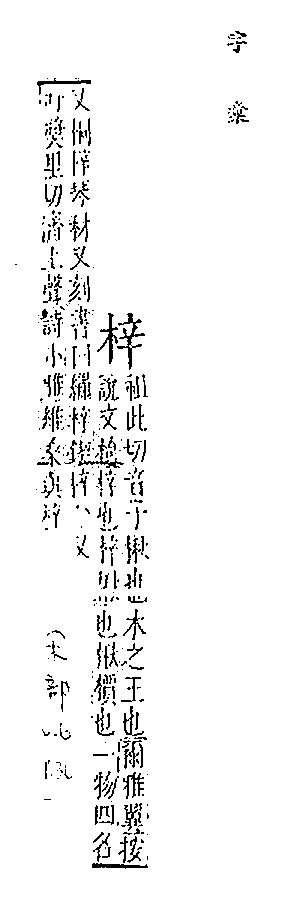 字彙
梓
祖此切音子楸也木之王也爾雅翼按
說文楸梓也梓也楸檟也一物四名
又桐梓琴材又刻書曰繡梓鋟梓又
奬里切濟上聲詩小雅維桑與梓
木部